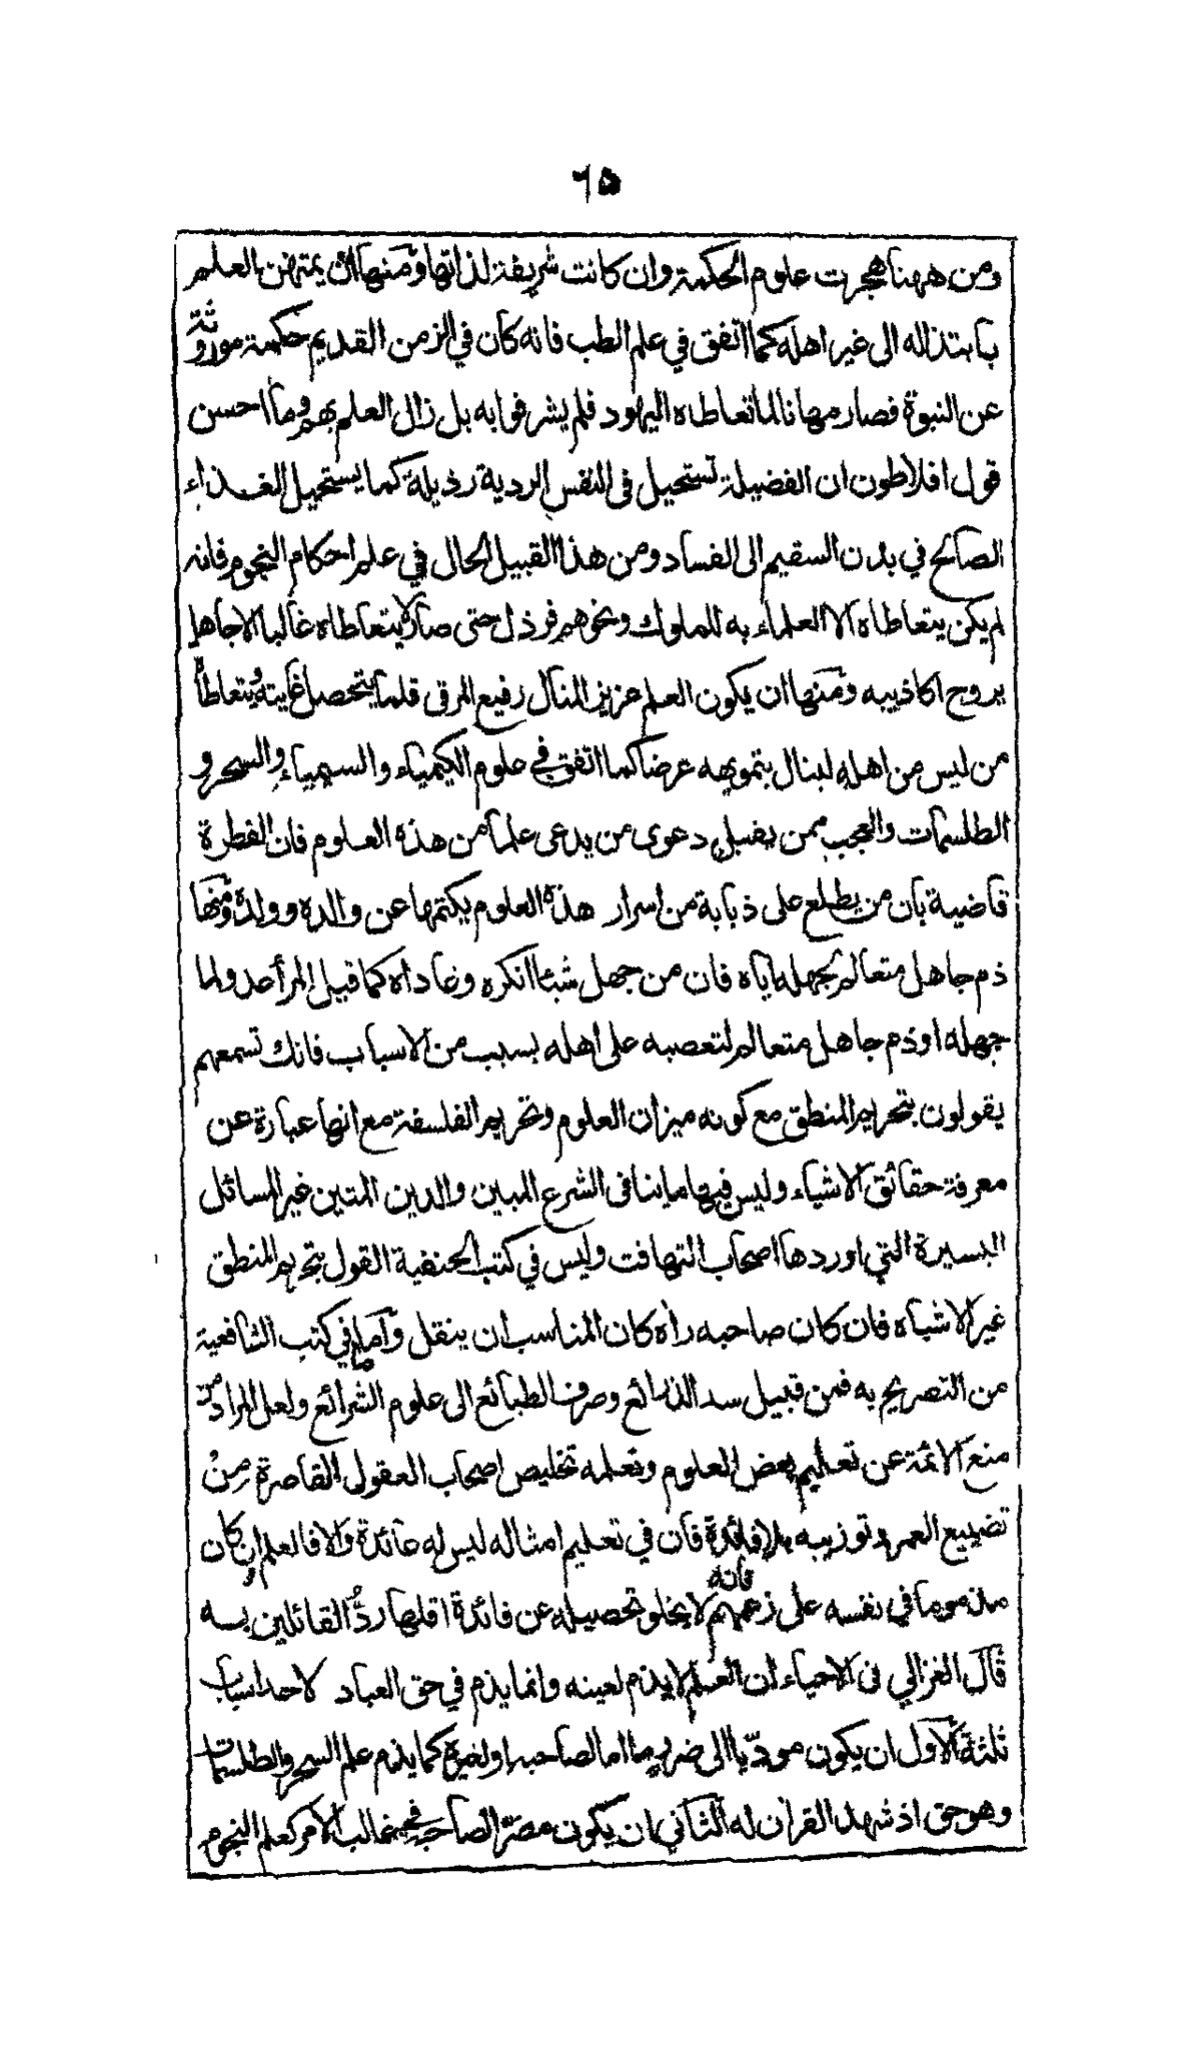 ٦٥
ومن ههنا هجرت علوم الحكمة وان كانت شريفة لذاتها ومنها ان يمتهن العلم
بابتذاله الى غير اهله كما اتفق في علم الطب فانه كان في الزمن القديم حكمة موروثة
عن النبوة فصار مهانا لما تعاطاه اليهود فلم يشرفوا به بل زال العلم بهم وما احسن
قول افلاطون ان الفضيلة تستحيل في النفس الردية رذيلة كما يستحيل الغذاء
الصالح في بدن السقيم الى الفساد ومن هذا القبيل الحال في علم احكام النجوم فانه
لم يكن يتعاطاه الا العلماء به للملوك ونحوهم فرذل حتى صار لا يتعاطاه غالبا الا جاهل
يروج اكاذيبه ومنها ان يكون العلم عزيز المنال رفيع المرقى قلما يتحصل غايته ويتعاطاه
من ليس من اهله لينال بتمويهه عرضا كما اتفق في علوم الكيمياء والسيمياء والسحر و
الطلسمات والعجب ممن يقبل دعوى من يدعى علما من هذه العلوم فان الفطرة
قاضية بان من يطلع على ذبابة من اسرار هذه العلوم يكتمها عن والده وولده ومنها
ذم جاهل متعالم لجهله اياه فان من جهل شيئا انكره وعاداه كما قيل المرأ عدو لما
جهله او ذم جاهل متعالم لتعصبه على اهله بسبب من الاسباب فانك تسمعهم
يقولون بتحريم المنطق مع كونه ميزان العلوم وتحريم الفلسفة مع انها عبارة عن
معرفة حقائق الاشياء وليس فيها ما ينافى الشرع المبين والدين المتين غير المسائل
اليسيرة التي اوردها اصحاب التهافت وليس في كتب الحنفية القول بتحريم المنطق
غير الاشباه فان كان صاحبه راه كان المناسب ان ينقل واما ما في كتب الشافعية
من التصريح به فمن قبيل سد الذرائع وصرف الطبائع الى علوم الشرائع ولعل المراد من
منع الائمة عن تعليم بعض العلوم وتعلمه تخليص اصحاب العقول القاصرة من
تضييع العمر وتوزيبه بلا فائدة فان في تعليم امثاله ليس له عائدة والا فالعلم ان كان
مذموما في نفسه على زعمهم فانه لا يخلو تحصيله عن فائدة اقلها ردّ القائلين به
قال الغزالي فى الاحياء ان العلم لا يذم لعينه وانما يذم في حق العباد لاحد اسباب
ثلثة الاول ان يكون مودّيا الى ضرر ما اما لصاحبه او لغيره كما يذم علم السحر والطلسمات
وهو حق اذ شهد القران له الثاني ان يكون مضرّا لصاحبه في غالب الامر كعلم النجوم